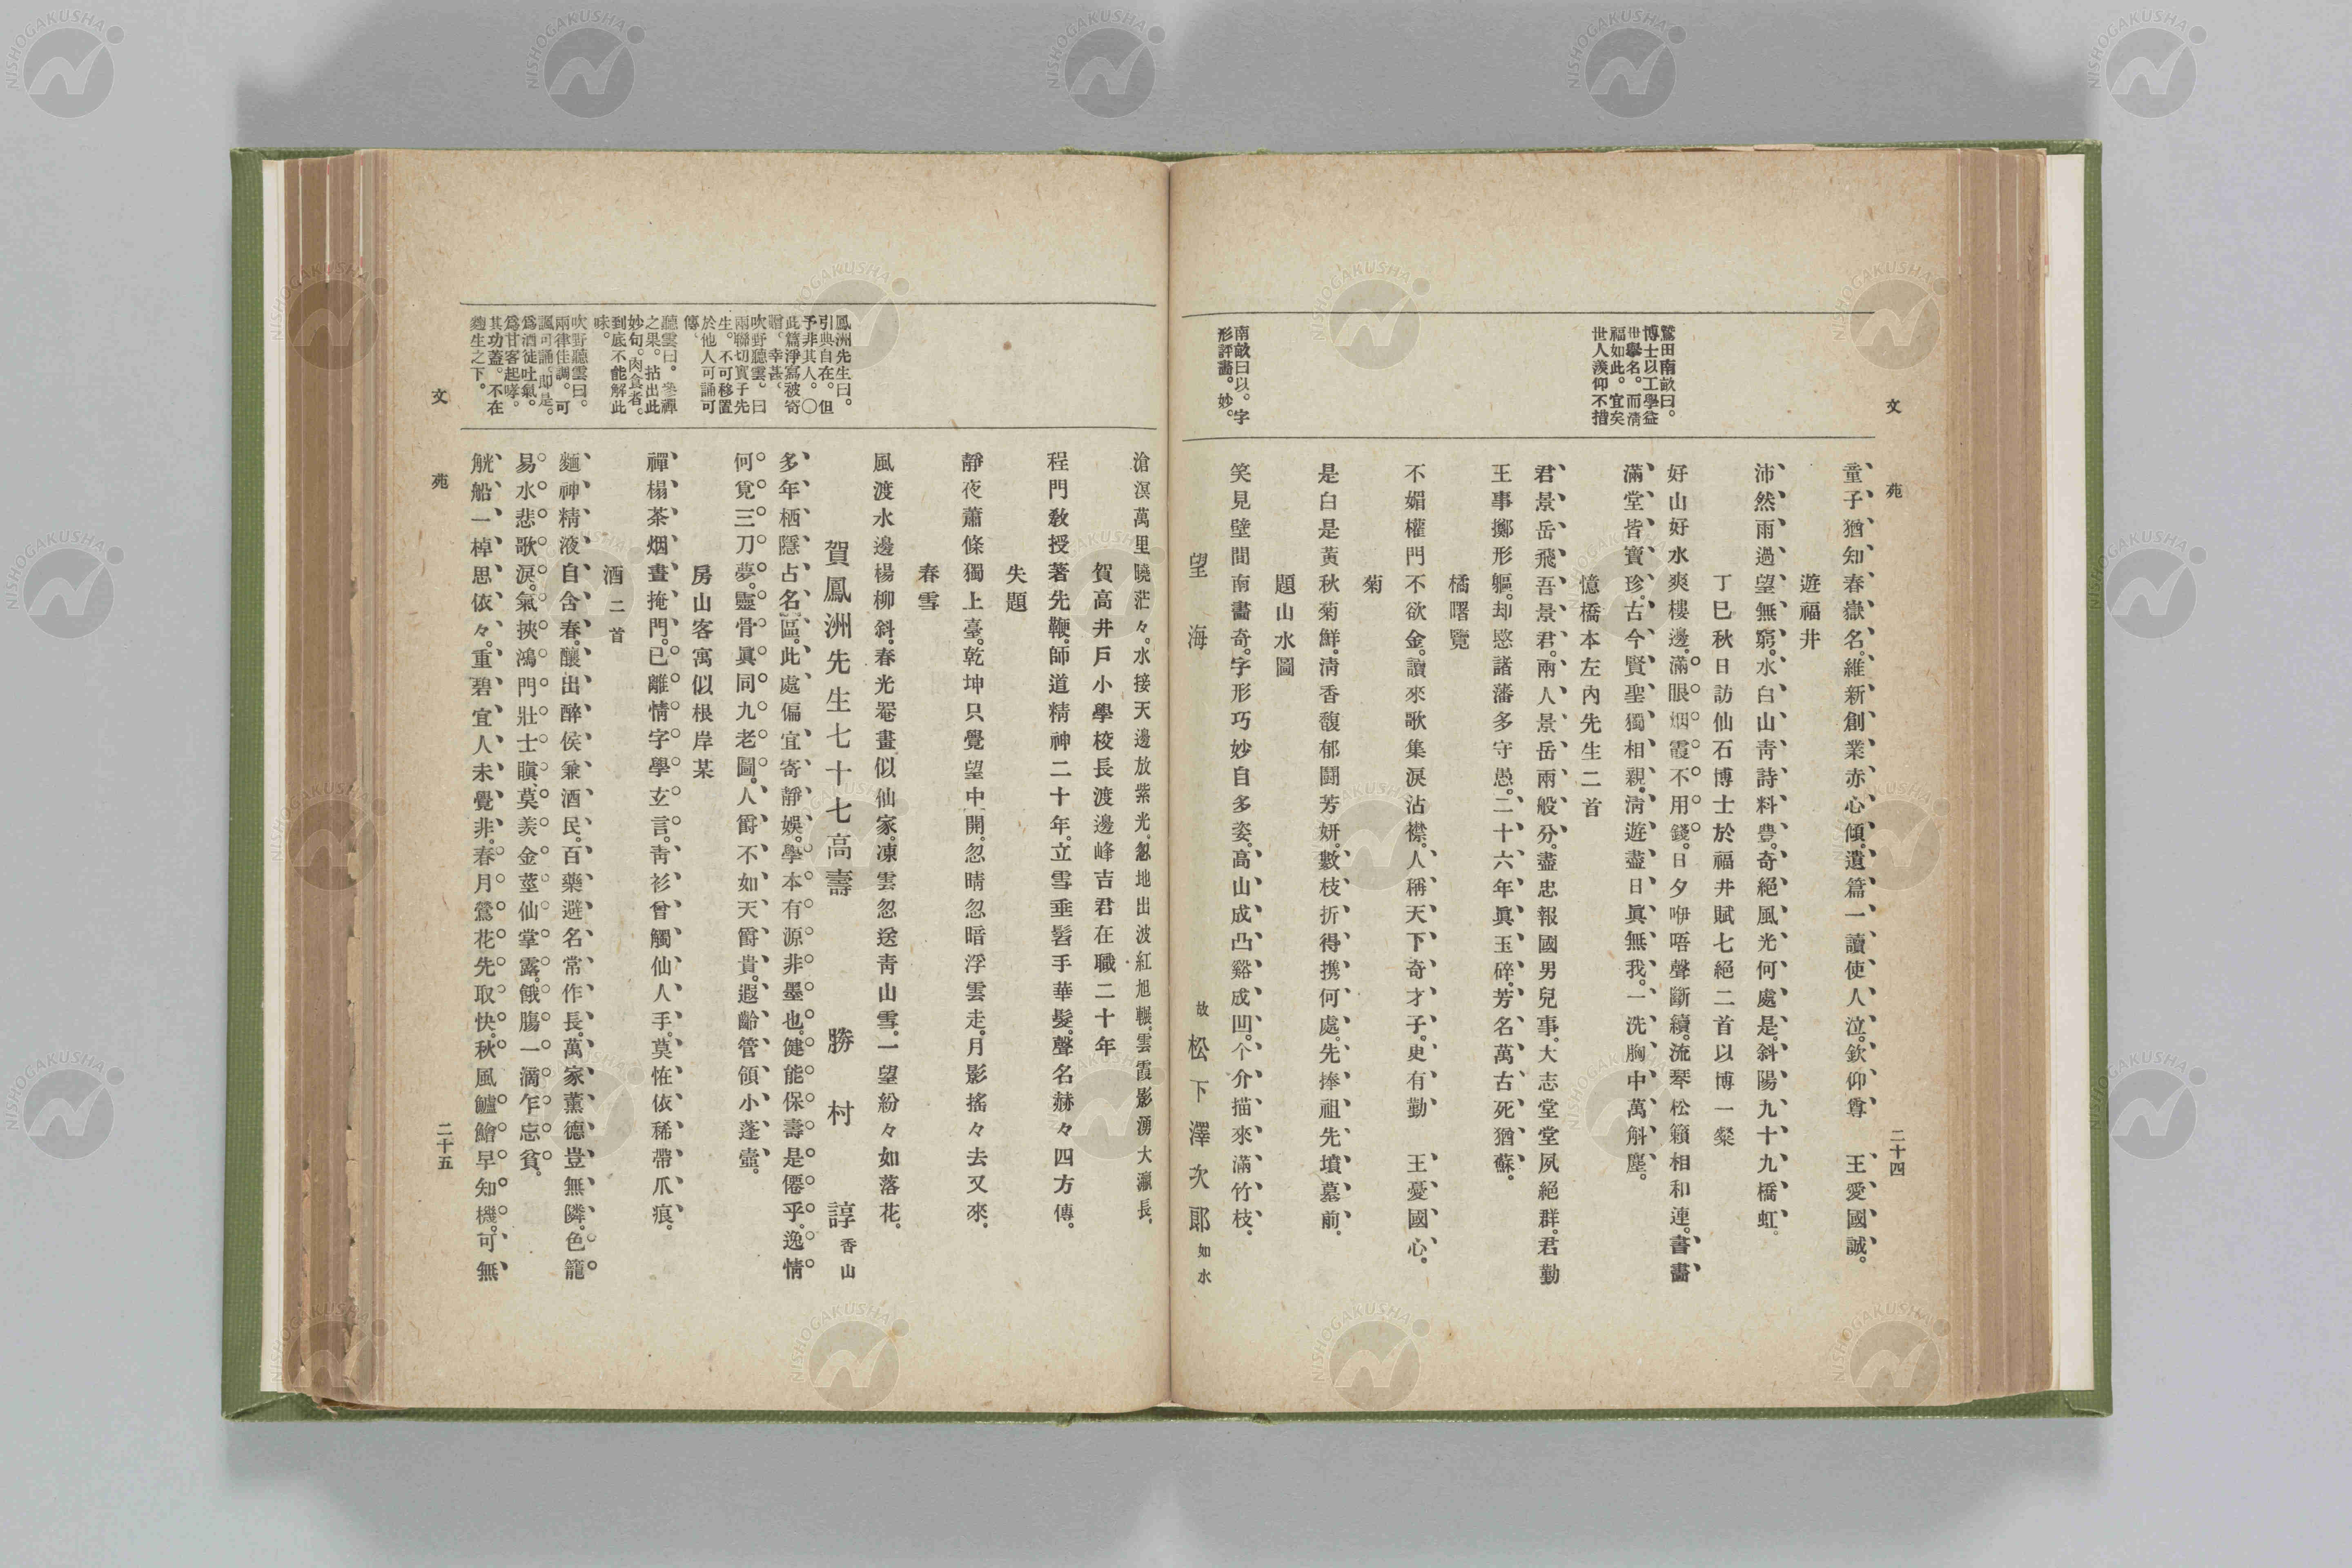 文苑
二十四
鷲田南畝曰。
博士以工學益
世擧名。而淸
福如此。宜矣
世人羨仰不措
南畝曰以。字
形評畵。妙。
童子猶知春嶽名。維新創業赤心傾。遺篇一讀使人泣。欽仰尊　王愛國誠。
遊福井
沛然雨過望無窮。水白山靑詩料豊。奇絕風光何處是。斜陽九十九橋虹。
丁巳秋日訪仙石博士於福井賦七絕二首以博一粲
好山好水爽樓邊。滿眼烟霞不用錢。日夕咿唔聲斷續。流琴松籟相和連。書畵
滿堂皆寳珍。古今賢聖獨相親。淸遊盡日眞無我。一洗胸中萬斛塵。
憶橋本左內先生二首
君景岳飛吾景君。兩人景岳兩般分。盡忠報國男兒事。大志堂堂夙絕群。君勤
王事擲形軀。却愍諸藩多守愚。二十六年眞玉碎。芳名萬古死猶蘇。
橘曙覽
不媚權門不欲金。讀來歌集淚沾襟。人稱天下奇才子。更有勤　王憂國心。
菊
是白是黃秋菊鮮。淸香馥郁鬪芳妍。數枝折得携何處。先捧祖先墳墓前。
題山水圖
笑見壁間南畵奇。字形巧妙自多姿。高山成凸谿成凹。个介描來滿竹枝。
望海　故松下澤次郎如水
文苑
二十五
鳳洲先生曰。
引典自在。但
予非其人。〇
此篇淨寫被寄
贈。幸甚。
吹野聽雲。曰
兩聯切實于先
生。不可移置
於他人可誦可
傳。
聽雲曰。參禪
之果。拈出此
妙句。肉食者。
到底不能解此
味。
吹野聽雲曰。
兩律佳調。可
諷可誦。卽是。
爲酒徒吐氣。
爲甘客起哮。
其功蓋。不在
麴生之下。
滄溟萬里曉茫々。水接天邊放紫光。忽地出波紅旭輾。雲霞影湧大瀛長。
賀高井戶小學校長渡邊峰吉君在職二十年
程門敎授著先鞭。師道精神二十年。立雪垂髫手華髮。聲名赫々四方傳。
失題
靜夜蕭條獨上臺。乾坤只覺望中開。忽晴忽暗浮雲走。月影搖々去又來。
春雪
風渡水邊楊柳斜。春光罨畫似仙家。凍雲忽送靑山雪。一望紛々如落花。
賀鳳洲先生七十七高壽　勝村諄香山
多年栖隱占名區。此處偏宜寄靜娛。學本有源非墨也。健能保壽是僊乎。逸情
何覓三刀夢。靈骨眞同九老圖。人爵不如天爵貴。遐齡管領小蓬壷。
房山客寓似根岸某
禪榻茶烟晝掩門。已離情字學玄言。靑衫曾觸仙人手。莫恠依稀帶爪痕。
酒二首
麵神精液自含春。釀出醉侯兼酒民。百藥避名常作長。萬家薰德豈無隣。色籠
易水悲歌淚。氣挾鴻門壯士瞋。莫羨金莖仙掌露。餓膓一滴乍忘貧。
觥船一棹思依々。重碧宜人未覺非。春月鶯花先取快。秋風鱸鱠早知機。可無